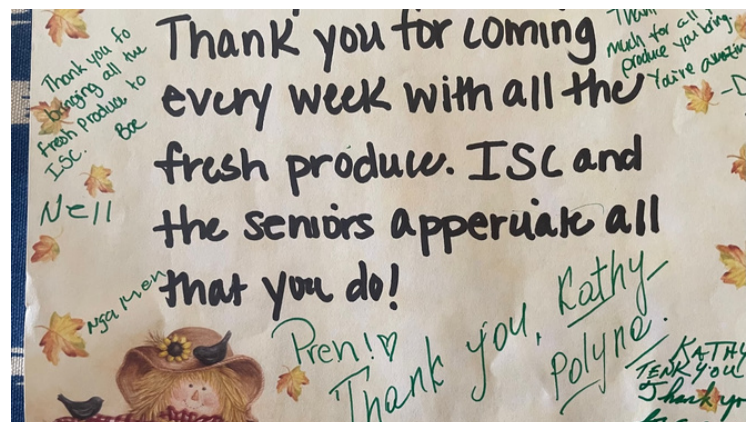 Thank you for coming
every week with all the
fresh produce. ISC and
the seniors apperciate all
that you do!
Thank you fo
bringing all the
fresh produce to
ISC. Bae
Nell
much for all
produce you bring.
You're amazin
Pren!♡
Thank you, Kathy
Polyna.
KATHY
TENK YOU
Thank yo